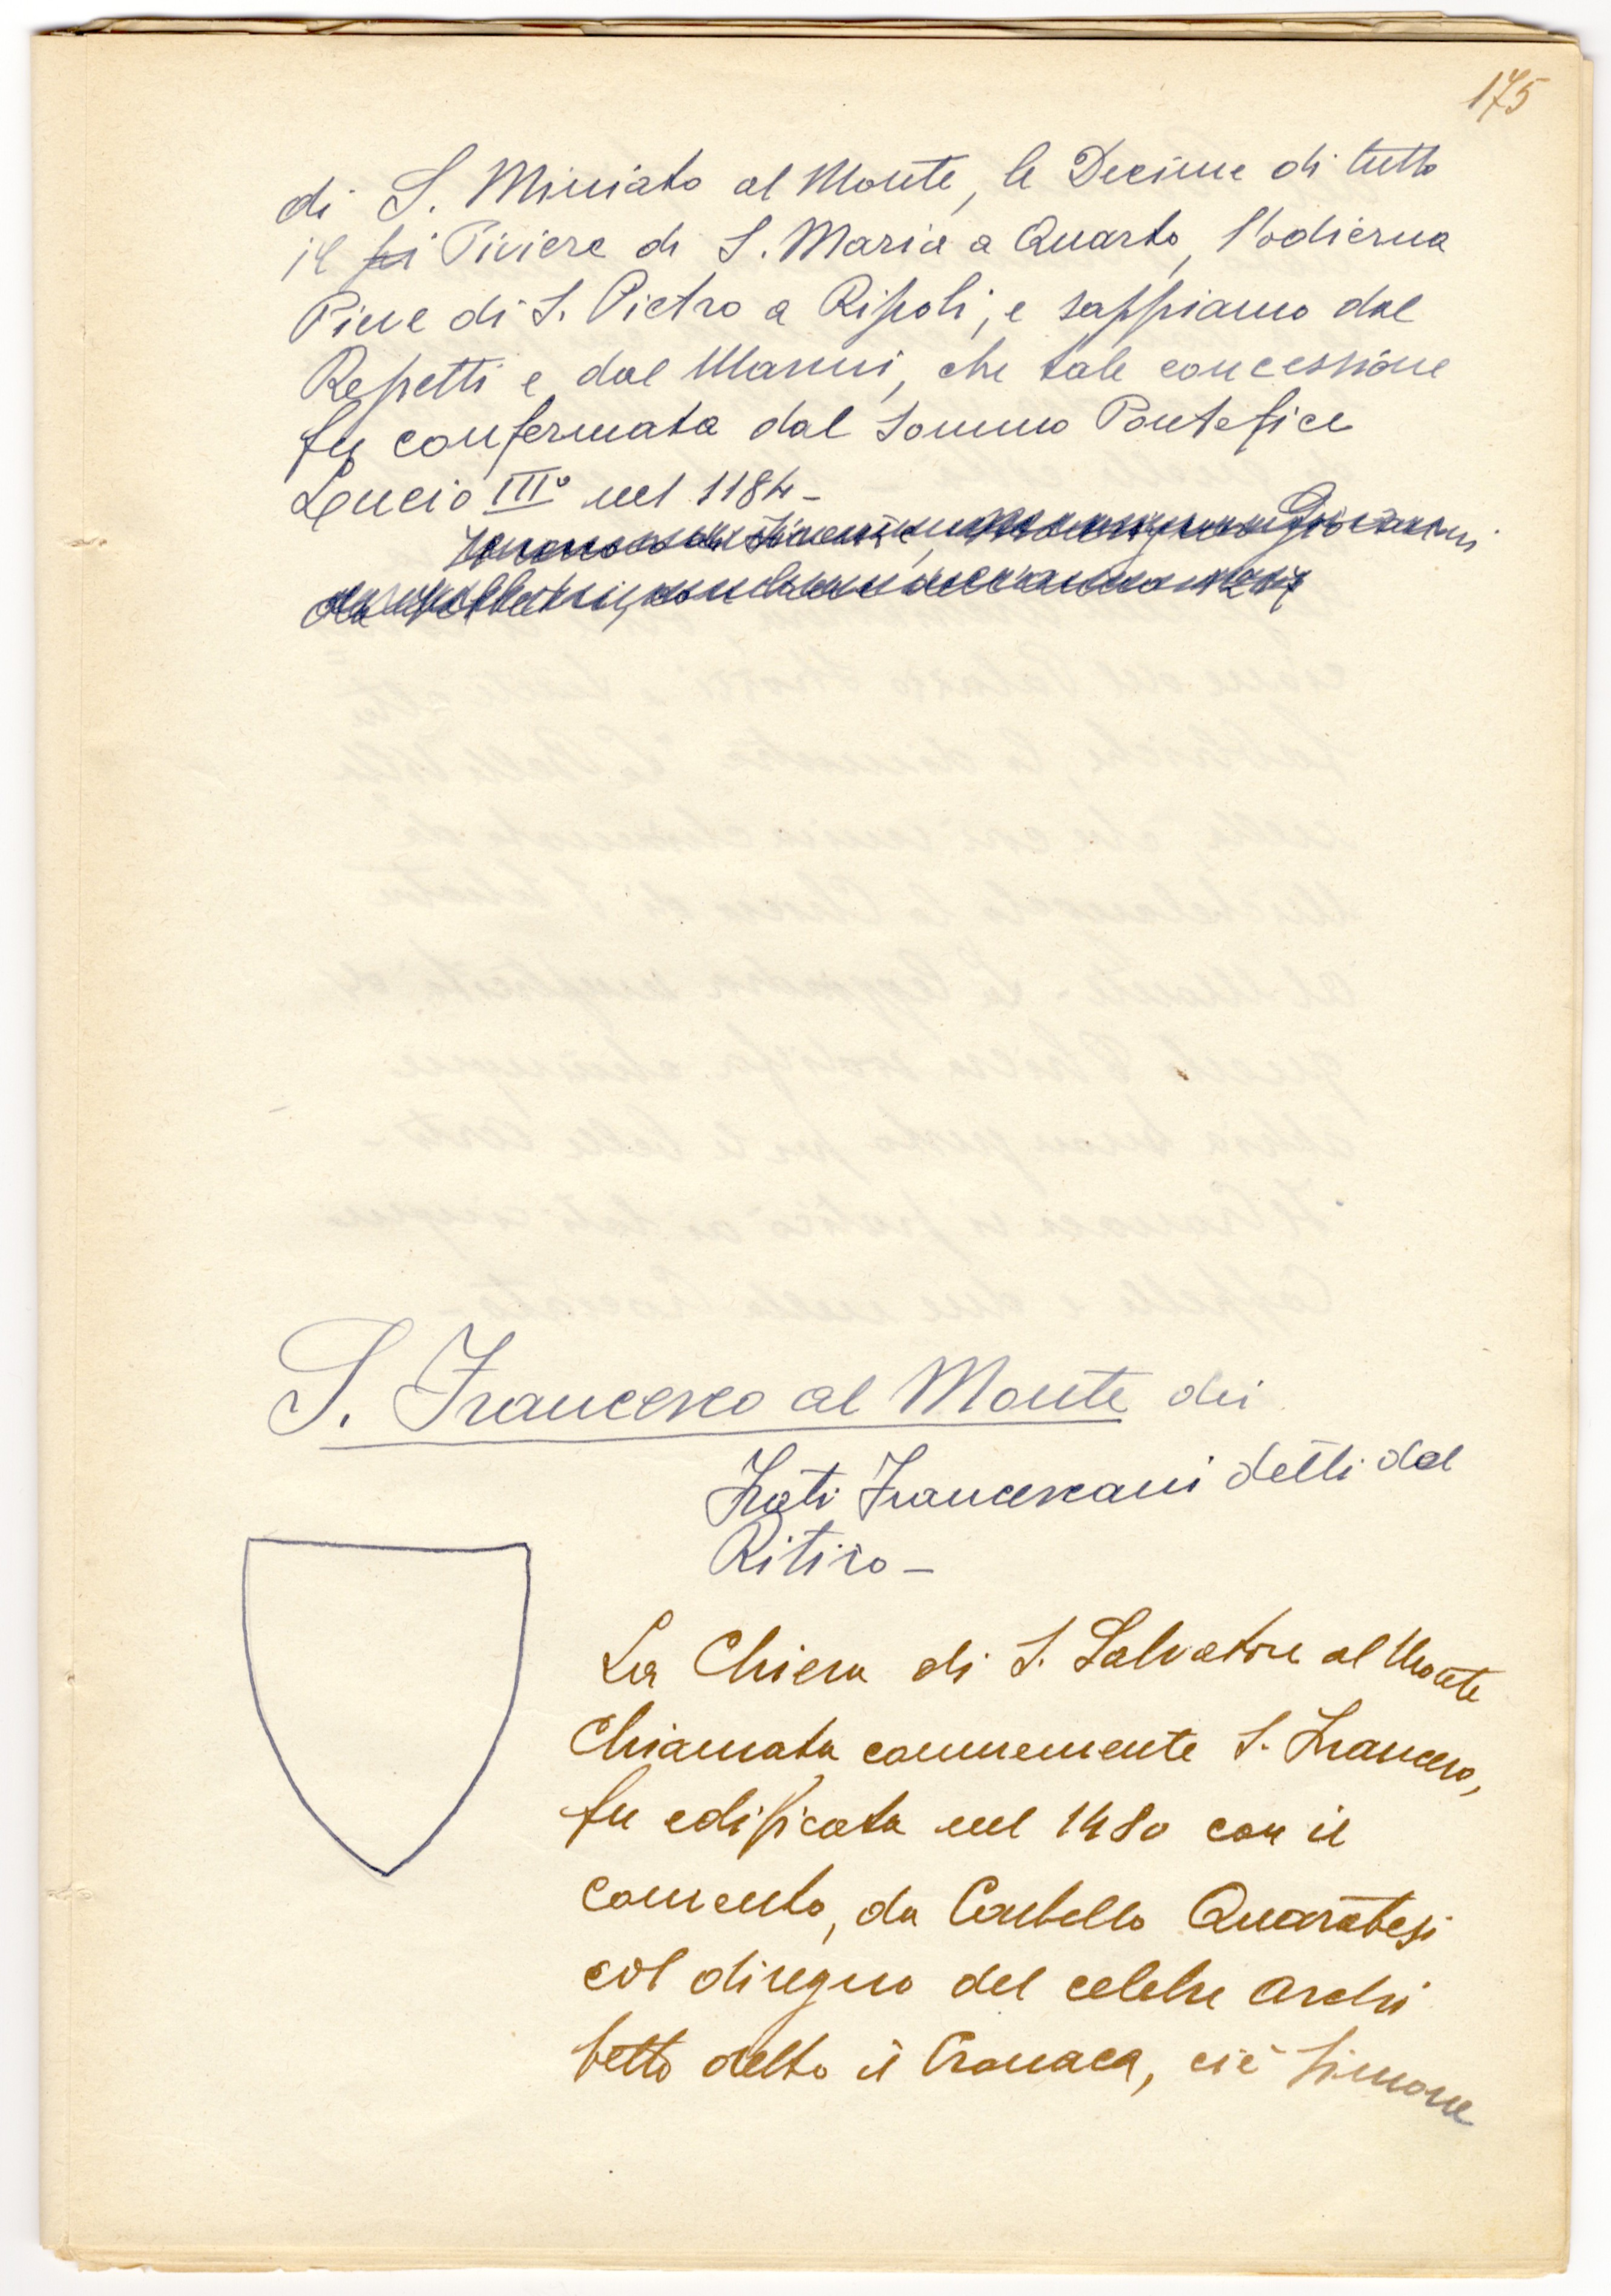 175
di S. Miniato al Monte, le Decime di tutto
il pi Piviere di S. Maria a Quarto, l'odierna
Pieve di S. Pietro a Ripoli, e sappiamo dal
Repetti e dal Manni, che tale concessione
fu confermata dal Sommo Pontefice
Lucio III° nel 1184-
S. Francesco al Monte dei
Frati Francescani detti del
Ritiro-
La Chiesa di S. Salvatore al Monte
Chiamata comunemente S. Francesco,
fu edificata nel 1480 con il
convento, da Castello Quaratesi
col disegno del celebre Archi
tetto detto il Cronaca, ciè Simone